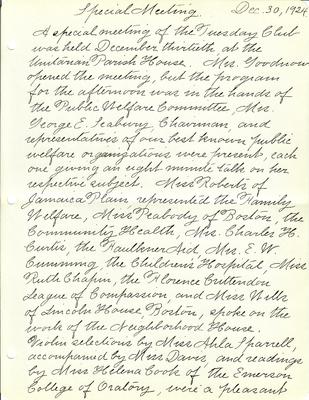 Special Meeting Dec. 30, 1924
A special meeting of the Tuesday Club
was held December thirtieth at the
Unitarian Parish House. Mrs. Goodnow
opened the meeting, but the program
for the afternoon was in the hands of
the Public Welfare Committee, Mrs.
George E. Seabury, Chairman, and
representatives of our best known public
welfare organizations were present, each
one giving an eight minute talk on her
respective subject. Miss Roberts of
Jamaica Plain represented the Family
Welfare, Miss Peabody of Boston, the
Community Health, Mrs. Charles H.
Curtis, the Faulkner Aid, Mrs. E. W.
Cumming, the Children's Hospital, Miss
Ruth Chapin, the Florence Crittendon
League of Compassion, and Miss Wells
of Lincoln House, Boston, spoke on the
work of the Neighborhood House.
Violin selections by Miss Sparrell,
accompanied by Miss Davis, and readings
by Miss Helena Cook of the Emerson
College of Oratory, were a pleasant